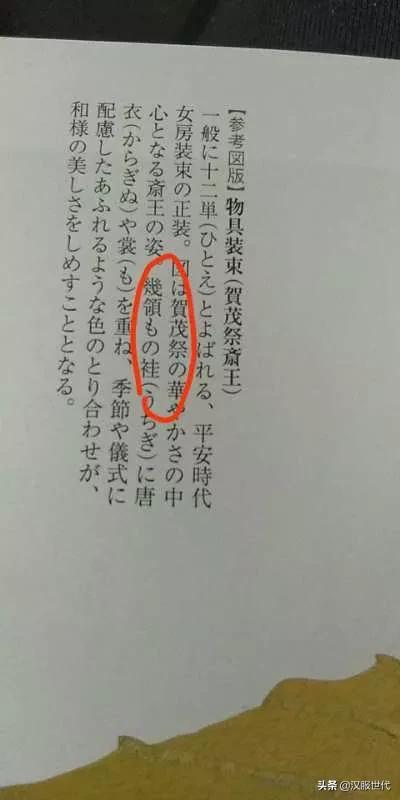 【参考図版】物具装束(賀茂祭斎王)
一般に十二単(ひとえ)とよばれる、平安時代
女房装束の正装。図は賀茂祭の華やかさの中
心となる斎王の姿 幾領もの袿(うちぎ)に唐
衣(からぎぬ)や裳(も)を重ね、季節や儀式に
配慮したあふれるような色のとり合わせが、
和様の美しさをしめすこととなる。
头条 @汉服世代